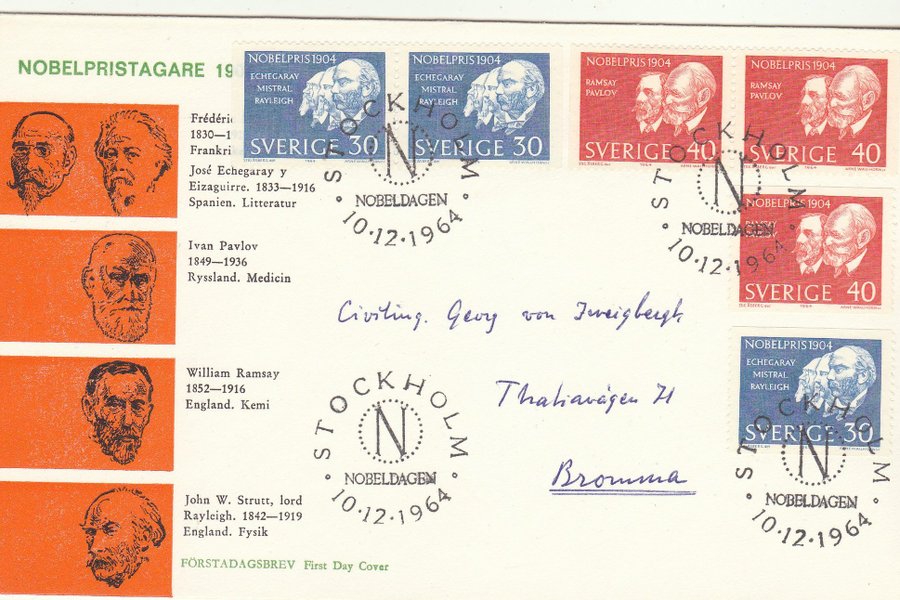 NOBELPRISTAGARE 19
Frédéric
1830—1
Frankri
José Echegaray y
Eizaguirre. 1833—1916
Spanien. Litteratur
Ivan Pavlov
1849—1936
Ryssland. Medicin
William Ramsay
1852—1916
England. Kemi
John W. Strutt, lord
Rayleigh. 1842—1919
England. Fysik
FÖRSTADAGSBREV First Day Cover
NOBELPRIS 1904
ECHEGARAY
MISTRAL
RAYLEIGH
SVERIGE 30
NOBELPRIS 1904
ECHEGARAY
MISTRAL
RAYLEIGH
SVERIGE 30
NOBELPRIS 1904
RAMSAY
PAVLOV
SVERIGE 40
NOBELPRIS 1904
RAMSAY
PAVLOV
SVERIGE 40
STOCKHOLM
N
NOBELDAGEN
10.12.1964
STOCKHOLM
N
NOBELDAGEN
10.12.1964
NOBELPRIS 1904
RAMSAY
SVERIGE 40
NOBELPRIS 1904
ECHEGARAY
MISTRAL
RAYLEIGH
SVERIGE 30
Civiling. Georg von Zweigbergk
Thaliavägen 71
Bromma
STOCKHOLM
N
NOBELDAGEN
10.12.1964
STOCKHOLM
N
NOBELDAGEN
10.12.1964